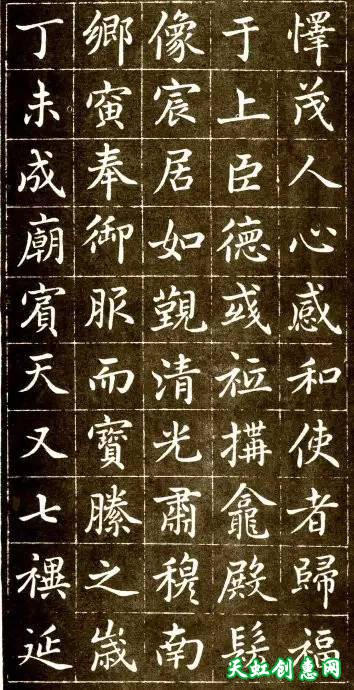 懌茂人心感和使者歸福
于上臣德彧祗搆龕殿髹
像宸居如覲清光肅穆南
鄉寅奉御服而寶縢之歲
丁未成廟賓天又七禩延
天虹创意网